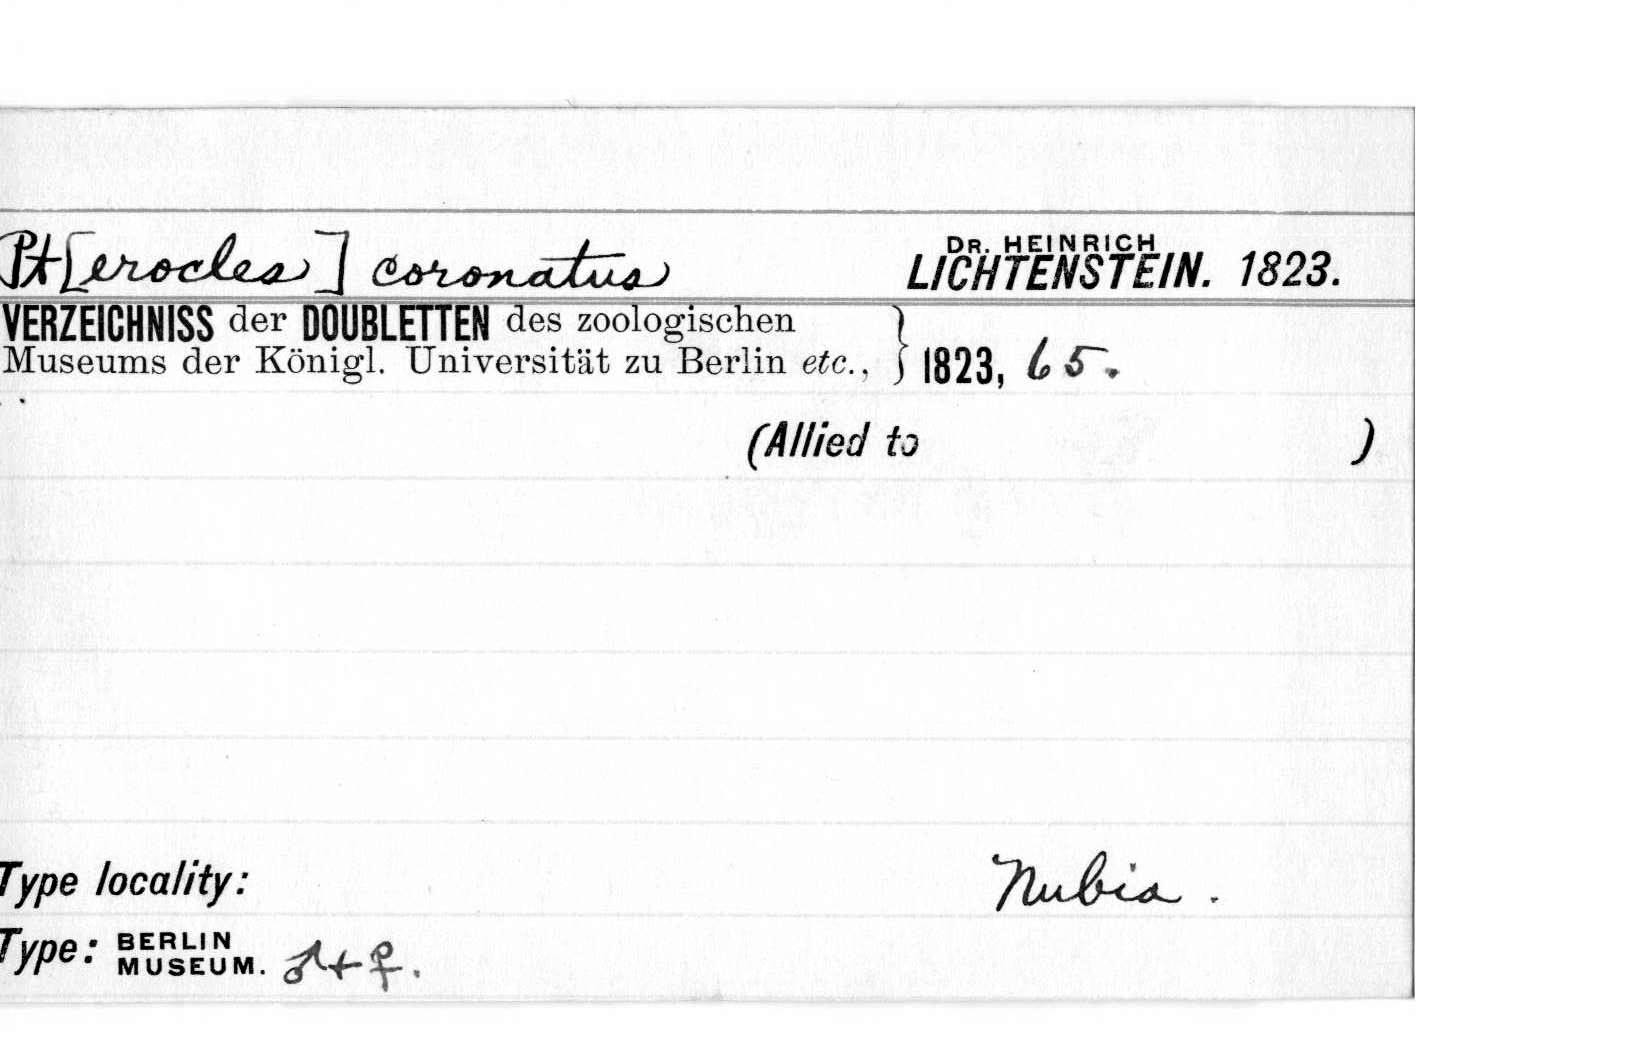 Pt[erocles] coronatus DR. HEINRICH LICHTENSTEIN. 1823.
VERZEICHNISS der DOUBLETTEN des zoologischen
Museums der Königl. Universität zu Berlin etc., } 1823, 65.
(Allied to )
Type locality: Nubia.
Type: BERLIN MUSEUM. ♂+♀.